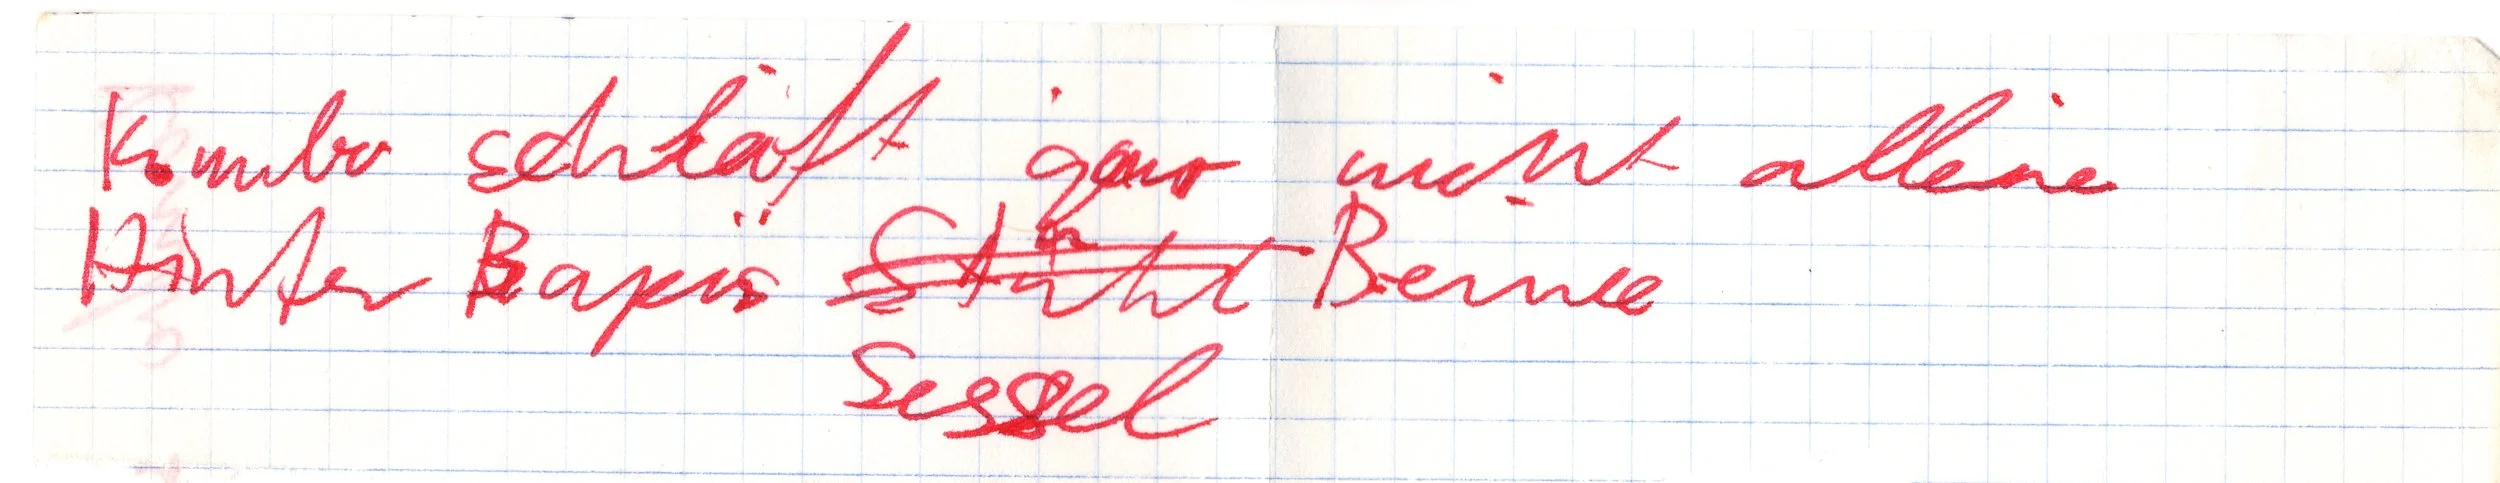 Kumbo schläft gar nicht alleine
Hinter Bayüs Stuhl Bernee
Sessel